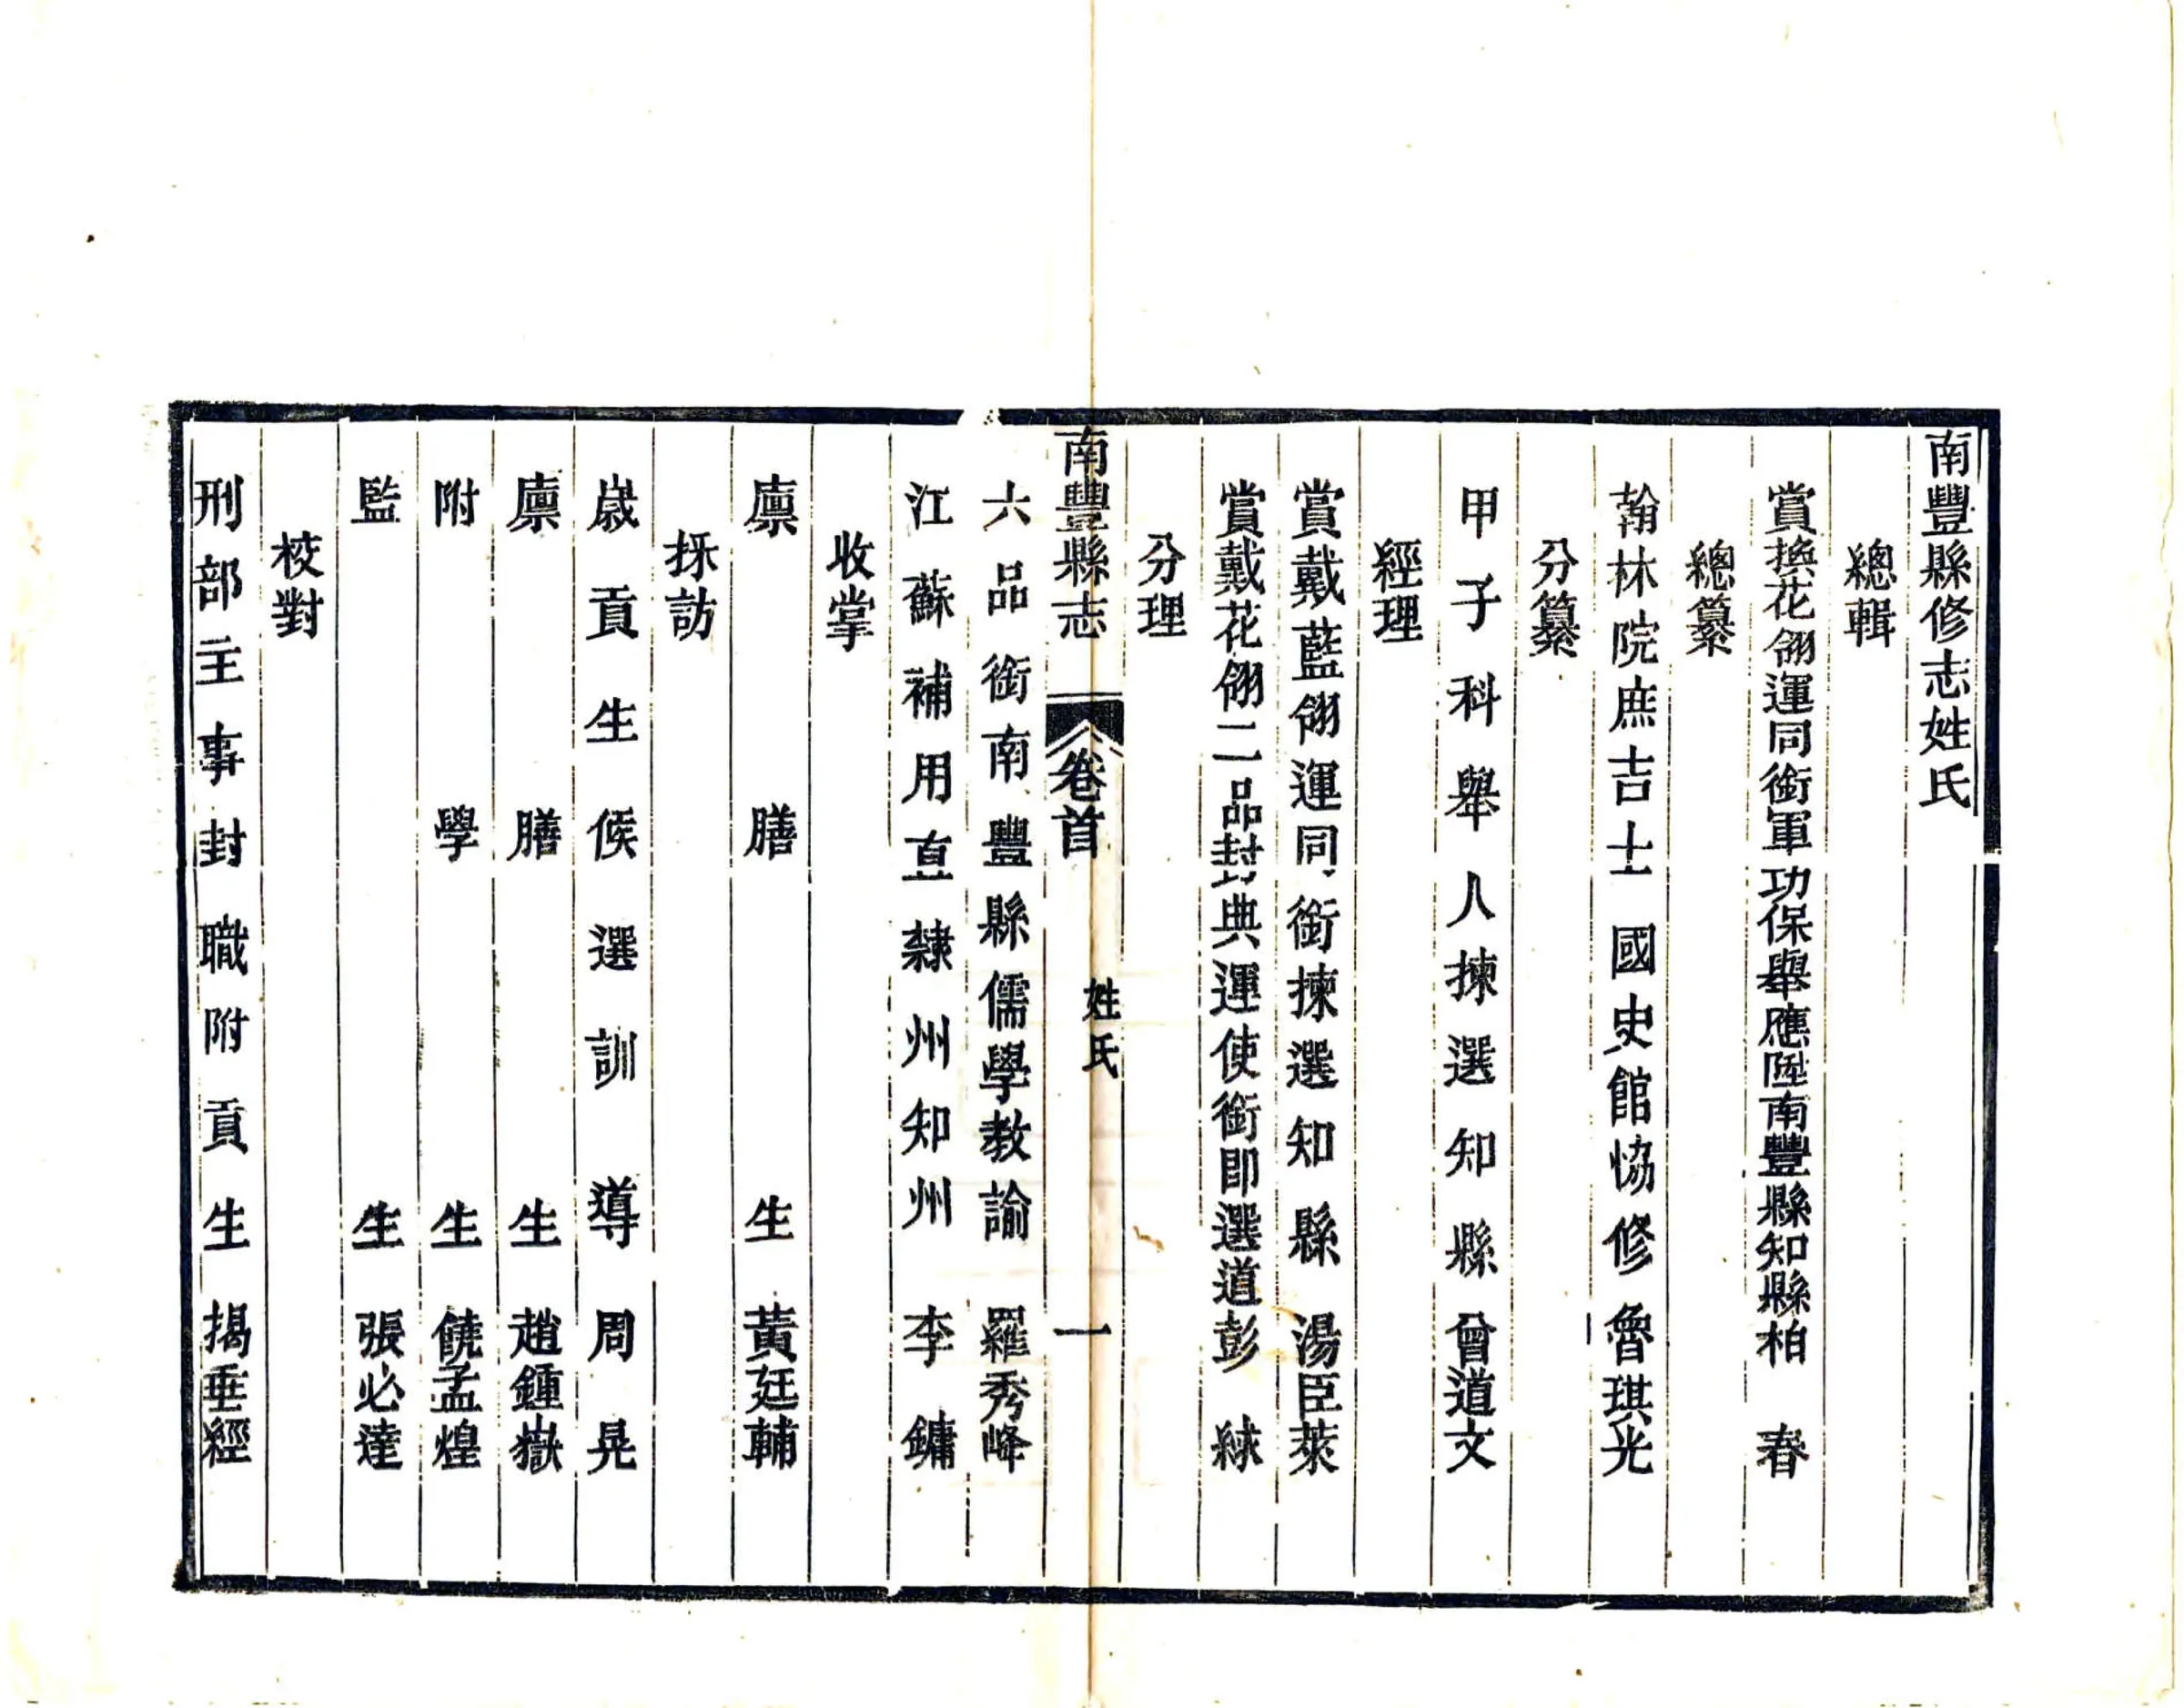 南豐縣修志姓氏
總輯
賞換花翎運同銜軍功保舉應陞南豐縣知縣柏春
總纂
翰林院庶吉士國史館協修魯琪光
分纂
甲子科舉人揀選知縣曾道文
經理
賞戴藍翎運同銜揀選知縣湯臣萊
賞戴花翎二品封典運使銜即選道彭絿
分理
南豐縣志 卷首 姓氏 一
六品銜南豐縣儒學教諭羅秀峰
江蘇補用直隸州知州李鏞
收掌
廩膳生黃廷輔
採訪
歲貢生候選訓導周晃
廩膳生趙鍾嶽
附學生饒孟煌
監生張必達
校對
刑部主事封職附貢生揭垂經